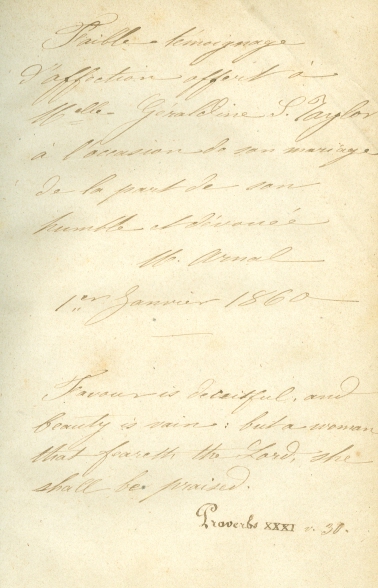 Faible témoignage
d'affection offert à
Melle Géraldine S. Taylor
à l'occasion de son mariage
de la part de son
humble et dévouée
M. Arnal
1er Janvier 1860
Favour is deceitful, and
beauty is vain: but a woman
that feareth the Lord, she
shall be praised.
Proverbs XXXI v. 30.